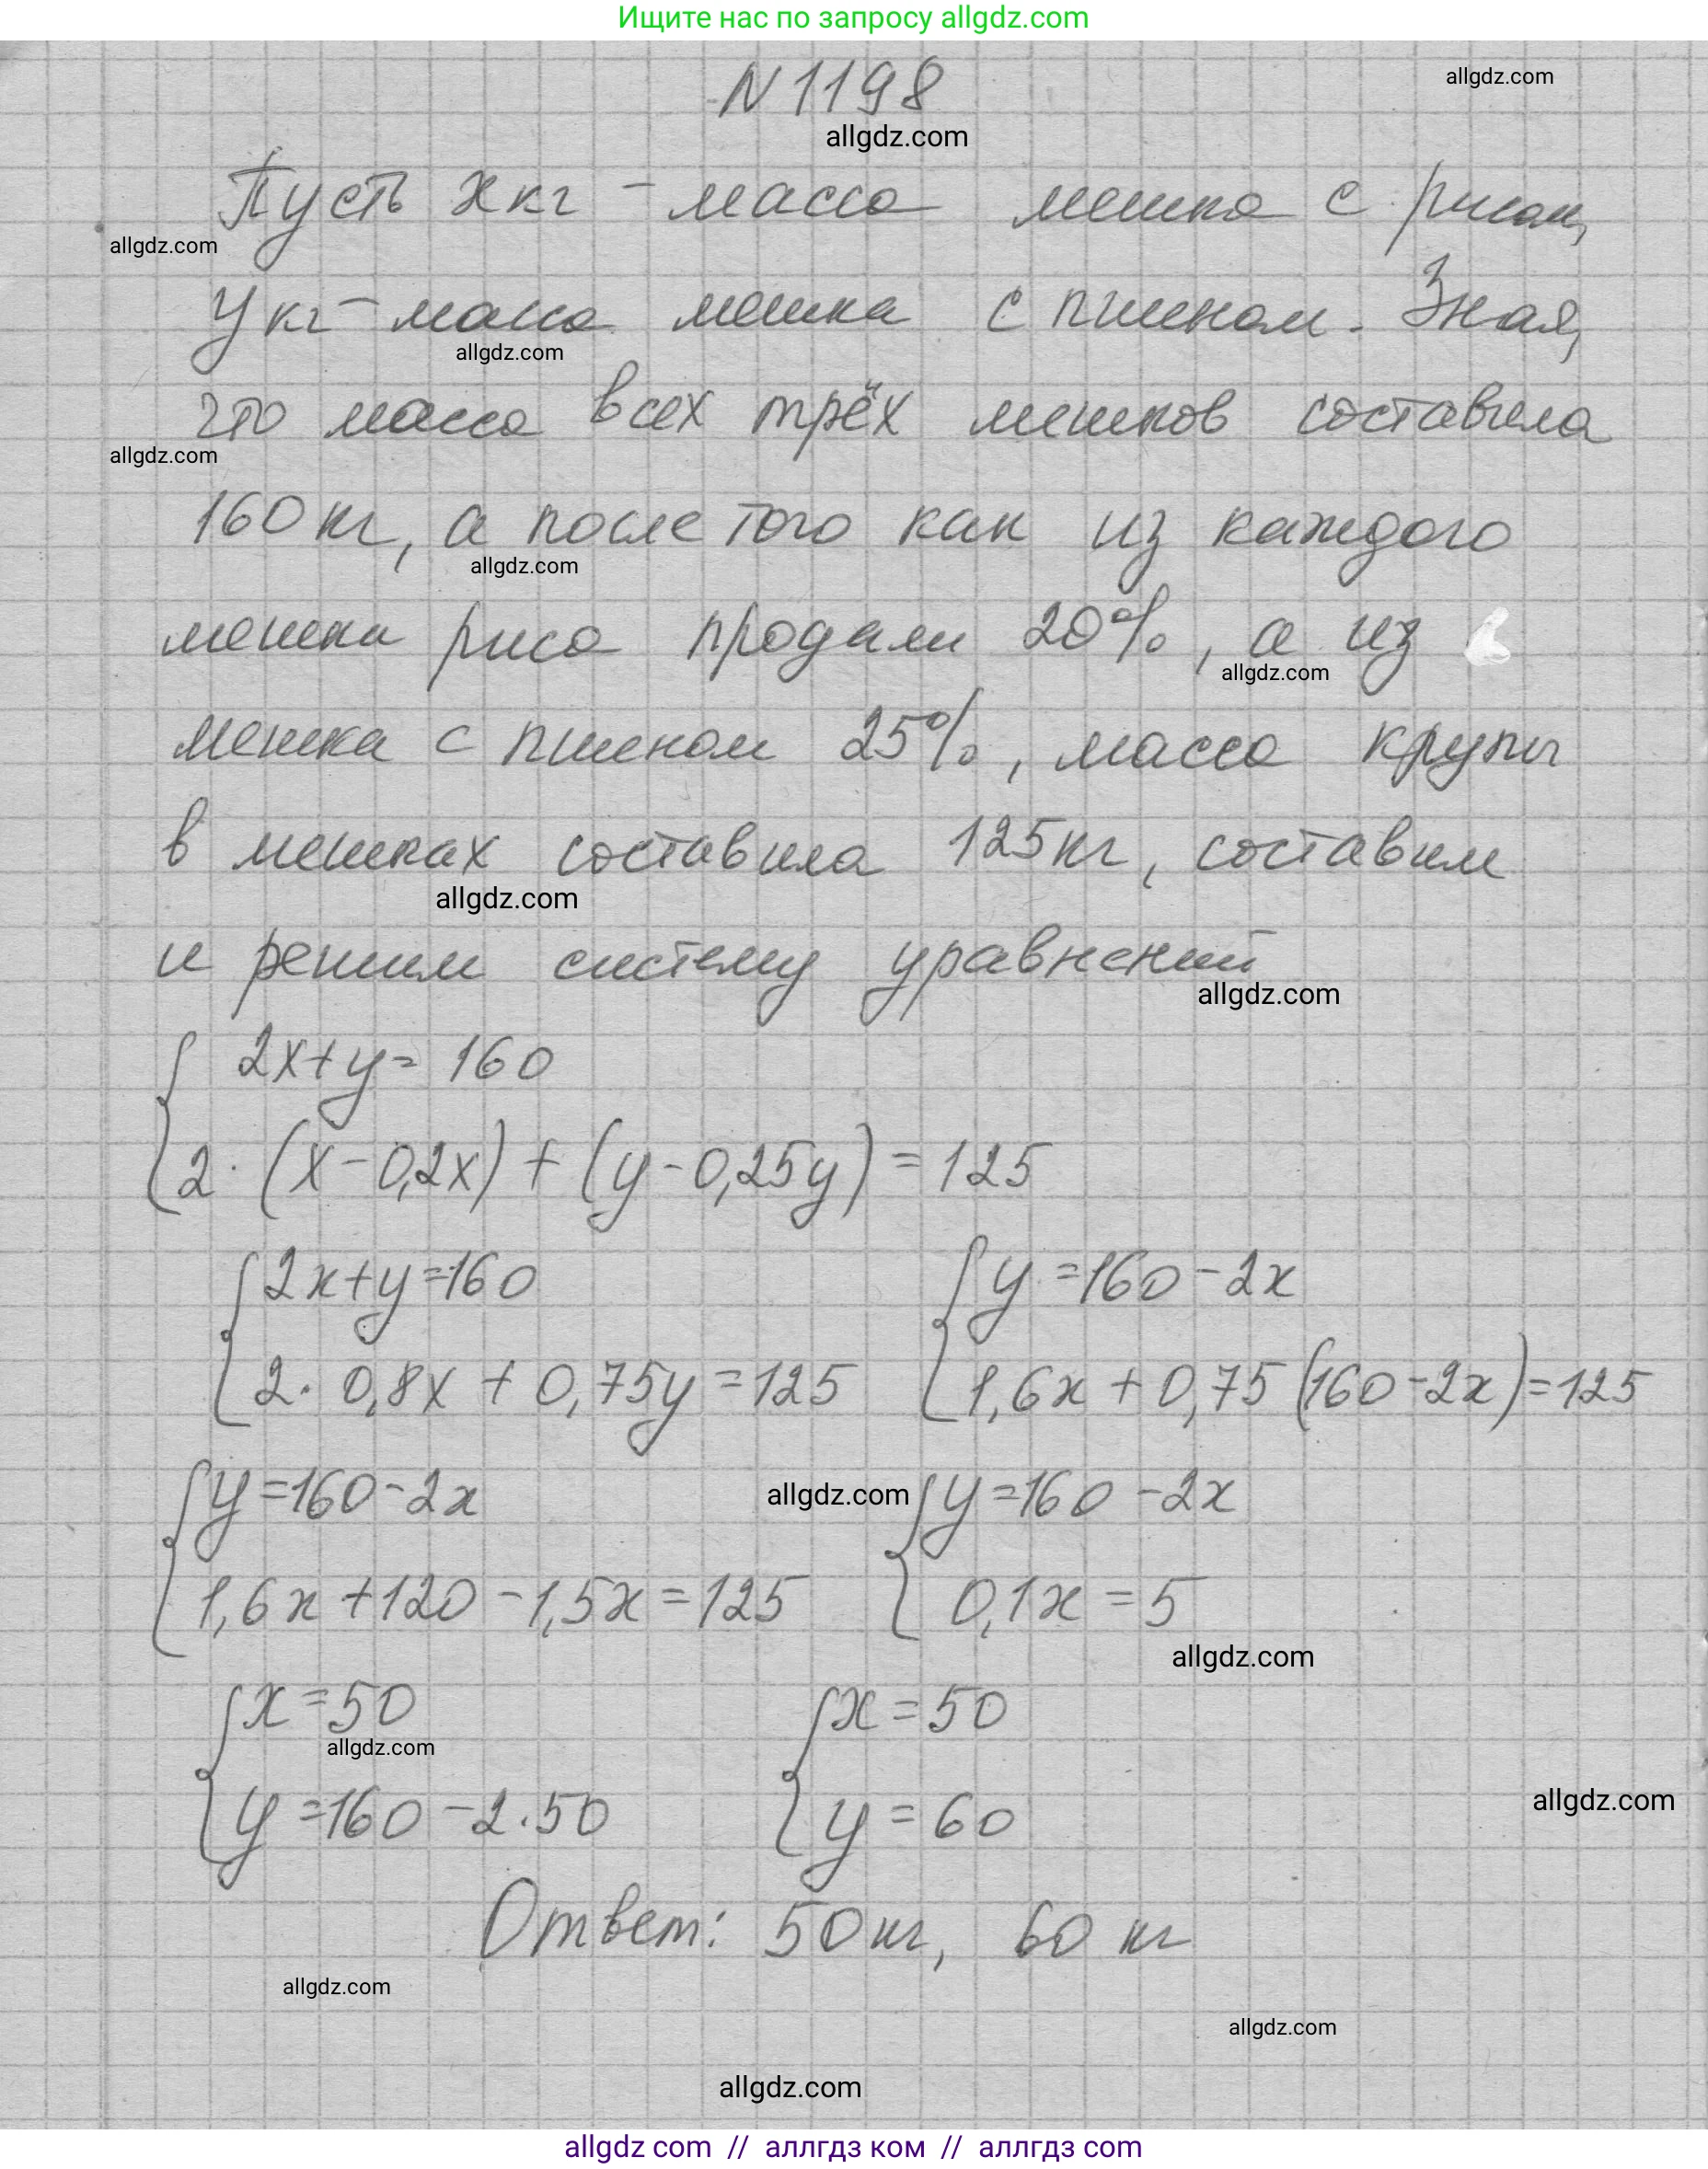 Ищите нас по запросу allgdz.com
N 1198
allgdz.com
allgdz.com
Пусть x кг - масса мешка с рисом,
allgdz.com
y кг - масса мешка с пшеном. Зная,
allgdz.com
что масса всех трёх мешков составила
allgdz.com
160 кг, а после того как из каждого
allgdz.com
мешка риса продали 20%, а из
allgdz.com
мешка с пшеном 25%, масса крупы
в мешках составила 125 кг, составим
allgdz.com
и решим систему уравнений
allgdz.com
2x+y= 160
2·(x-0,2x)+(y-0,25y)=125
2x+y=160 y=160-2x
2·0,8x+0,75y=125 1,6x+0,75(160-2x)=125
y=160-2x allgdz.com y=160-2x
1,6x+120-1,5x=125 0,1x=5
allgdz.com
x=50 x=50
allgdz.com
y=160-2·50 y=60
allgdz.com
Ответ: 50 кг, 60 кг
allgdz.com
allgdz.com
allgdz.com
allgdz com // аллгдз ком // аллгдз com